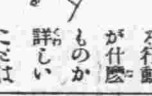 を行動
が什麽
ものか
詳しい
ことは